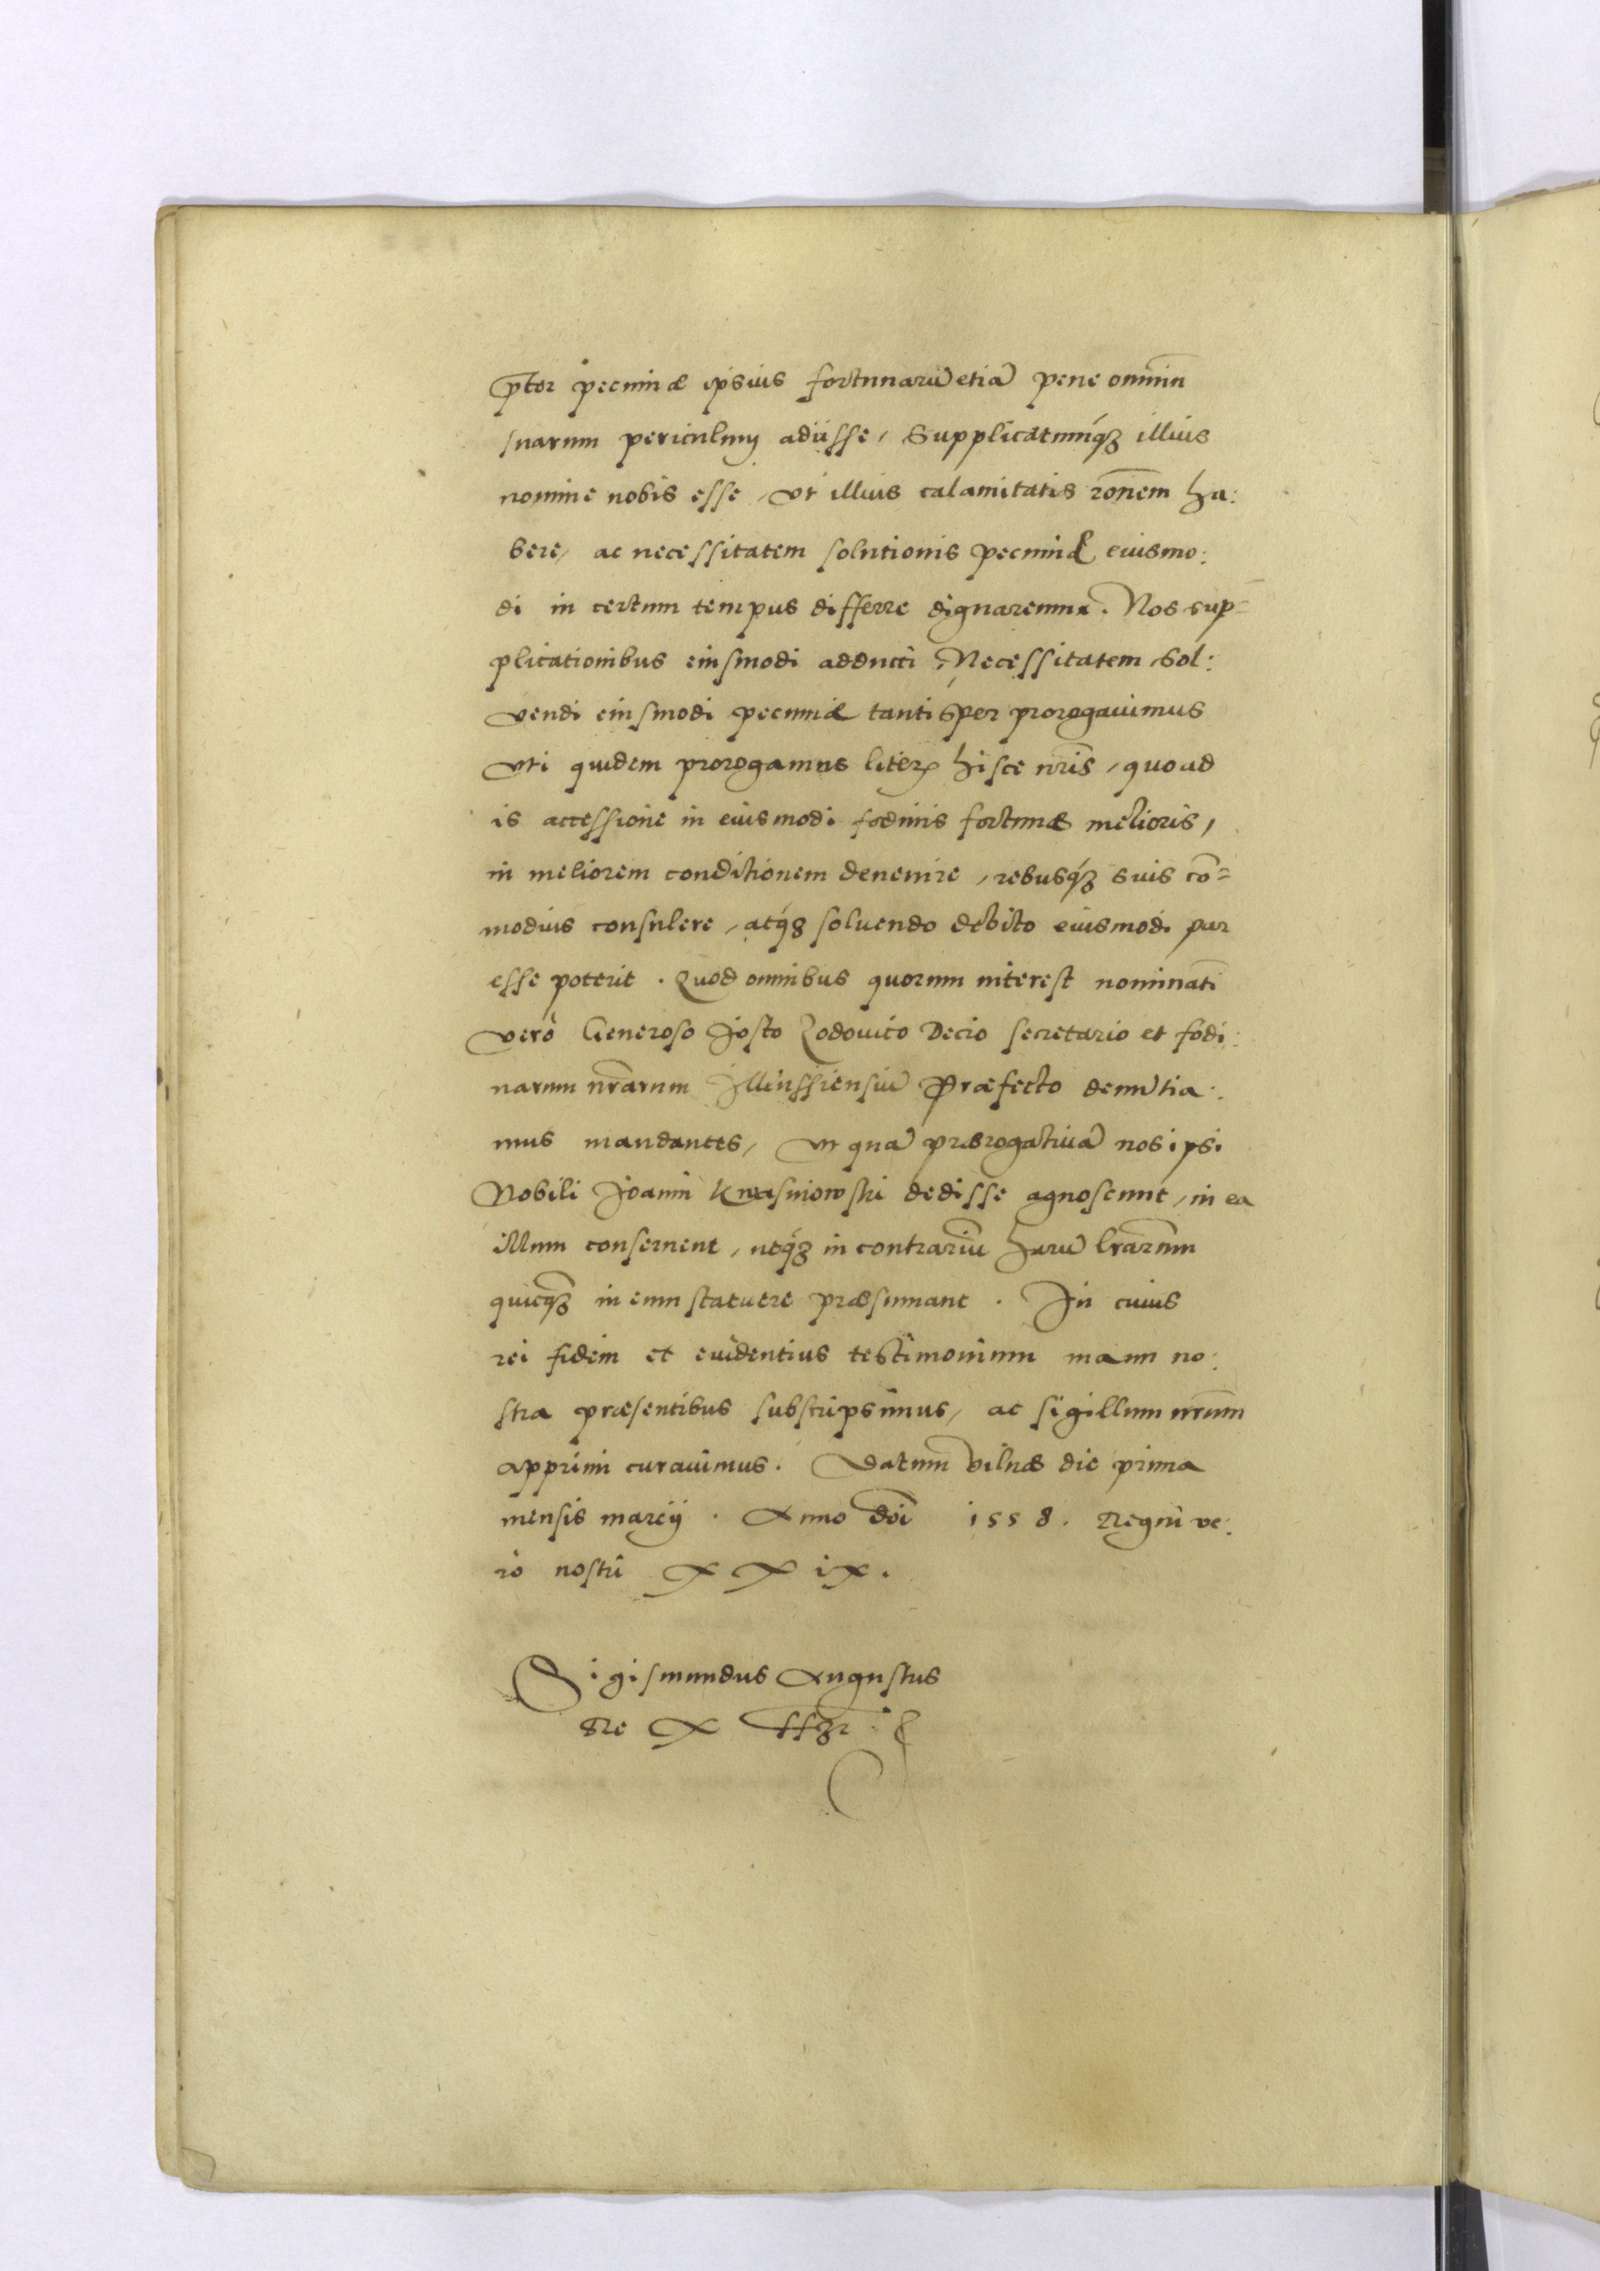 p̄ter pecuniæ ipsius fortunarū etiā pene omniū
suarum periculum adiisse, Supplicatumq́ꝫ illius
nomine nobis esse, vt illius calamitatis rōnem ha:
bere, ac necessitatem solutionis pecuniæ eiusmo:
di in certum tempus differre dignaremur. Nos sup=
plicationibus eiusmodi adducti, Necessitatem sol:
vendi eiusmodi pecuniæ tantisper prorogauimus
vti quidem prorogamus literꝭ hisce nr̄is, quoad
is accessione in eiusmodi fodinis fortunæ melioris,
in meliorem conditionem deuenire, rebusq́ꝫ suis cō=
modius consulere, atq́ꝫ soluendo debito eiusmodi par
esse poterit. Quod omnibus quorum interest nominati
verò Generoso Josto Lodouico Decio secretario et fodi:
narum nr̄arum Illkussiensiū Præfecto denūtia:
mus mandantes, vt quā prærogatiuā nos ipsi
Nobili Joanni Kwasniowski dedisse agnoscunt, in ea
illum conseruent, neq́ꝫ in contrariū harū lr̄arum
quicq̄ꝫ in eum statuere præsumant. In cuius
rei fidem et euidentius testimonium manu no:
stra præsentibus subscripsimus, ac sigillum nr̄um
apprimi curauimus. Datum Vilnæ die prima
mensis marcij. Anno Dōi 1558. Regni ve:
rò nostri XXix.
Sigismundus Augustus
Rex sszt